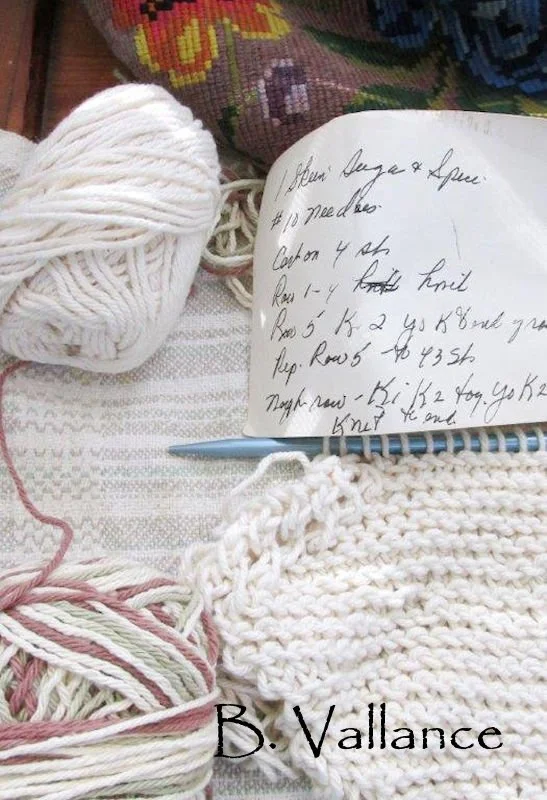 1 Skein Sugar & Spice
#10 needles
Cast on 4 sts
Row 1-4 knit
Row 5 K 2 yo K to end
Rep. Row 5 to 43 sts
row - K1 K2 tog. yo K2
Knit to end
B. Vallance